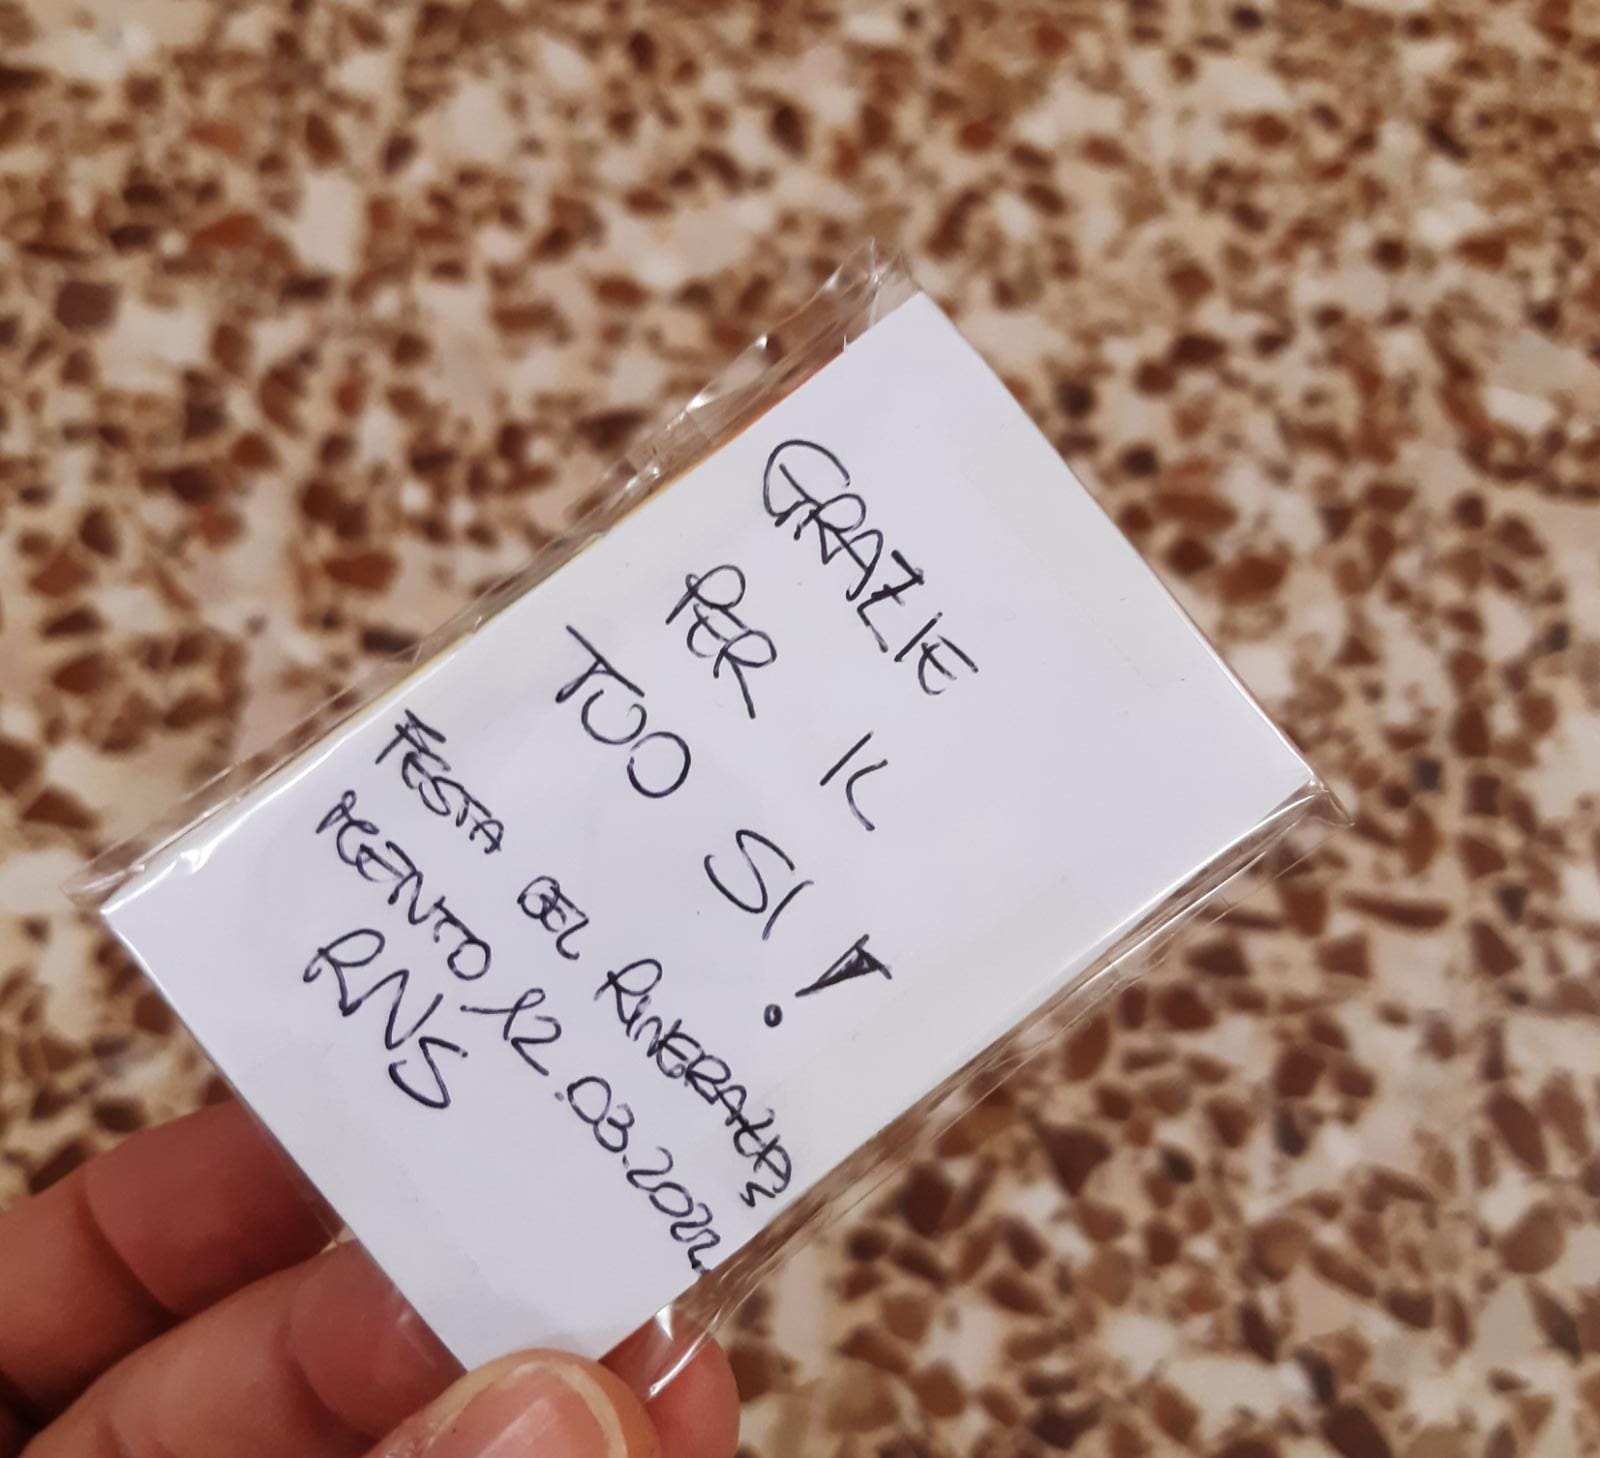 GRAZIE
PER IL
TUO SI!
FESTA DEL RINGRAZIA
MENTO 12.03.2022
RNS